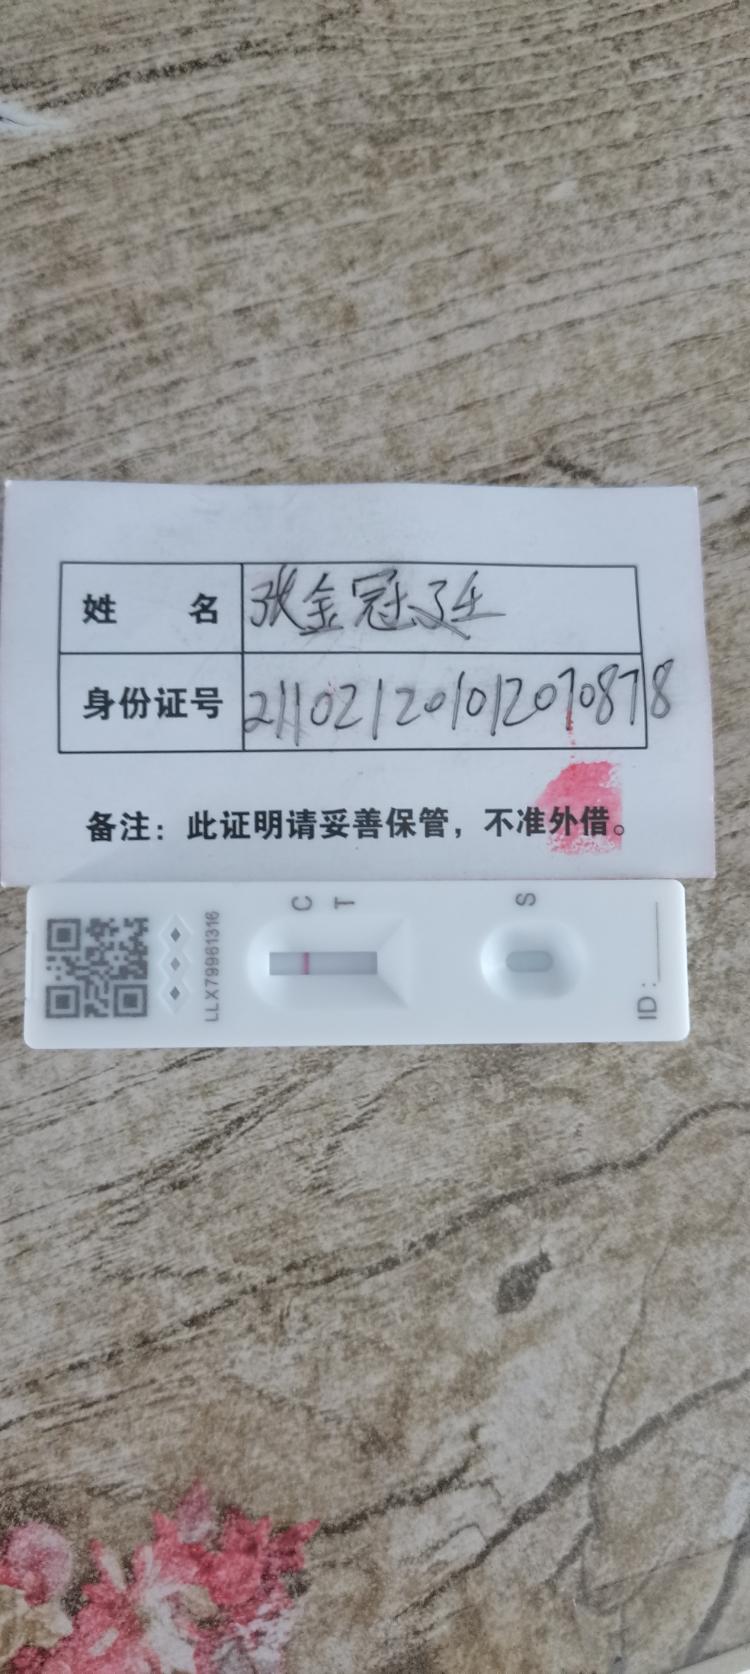 姓名 张金冠廷
身份证号 211021201012070878
备注：此证明请妥善保管，不准外借。
C T
S
LLX79961316
ID: